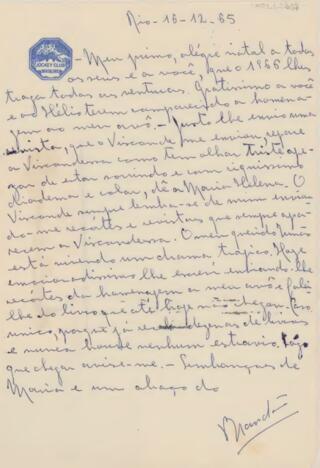 Rio - 16-12-65
JOCKEY CLUB
BRASILEIRO
- Meu primo, alegre natal a todos
os seus e a você, que o 1966 lhes
traga todas as venturas. Gratíssimo a você
e ao Hélio terem comparecido a homena-
gem ao meu avô. - Junto lhe envio uma
revista, que a Viscondessa me enviou, repare
a Viscondessa como tem olhar triste ape-
zar de estar sorrindo e com riquissimo
diadema e colar, dê a Maria Helena. O
Visconde sempre lembra-se de mim envian
do-me recortes e revistas que sempre apa-
recem a Viscondessa. O meu querido
está vivendo um drama, trágico. Hoje
lhe escrevi enviando-lhe
recortes da homenagem a meu avô e falei
lhe do livro que até hoje não chegou. Caso
unico, porque já recebi dezenas de livros
e nunca houve nenhum extravio. Logo
que chegar avise-me. - Lembranças de
Maria e um abraço do